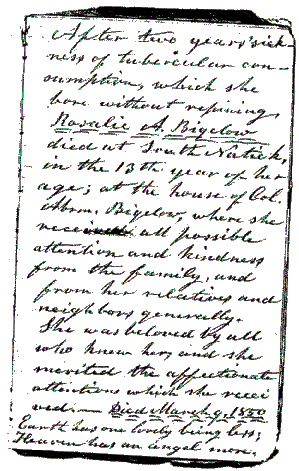 After two years' sick-
ness of tubercular con-
sumption, which she
bore without repining,
Rosalie A. Bigelow
died at South Natick,
in the 13th year of her
age; at the house of Col.
Abrm. Bigelow, where she
received all possible
attention and kindness
from the family, and
from her relatives and
neighbors generally.
She was beloved by all
who knew her, and she
merited the affectionate
attentions which she recei
ved. — Died March 9, 1850
Earth has one lovely being less;
Heaven has an angel more.